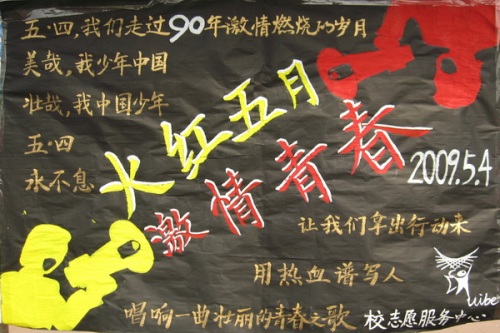 五·四,我们走过90年激情燃烧的岁月
美哉,我少年中国
壮哉,我中国少年
五·四
永不息
火红五月
激情青春
2009.5.4
让我们拿出行动来
用热血谱写人
唱响一曲壮丽的青春之歌
uibe
校志愿服务中心